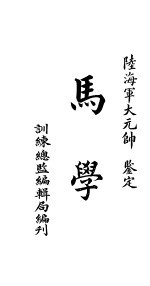 陸海軍大元帥 鑒定
馬學
訓練總監編輯局編刊